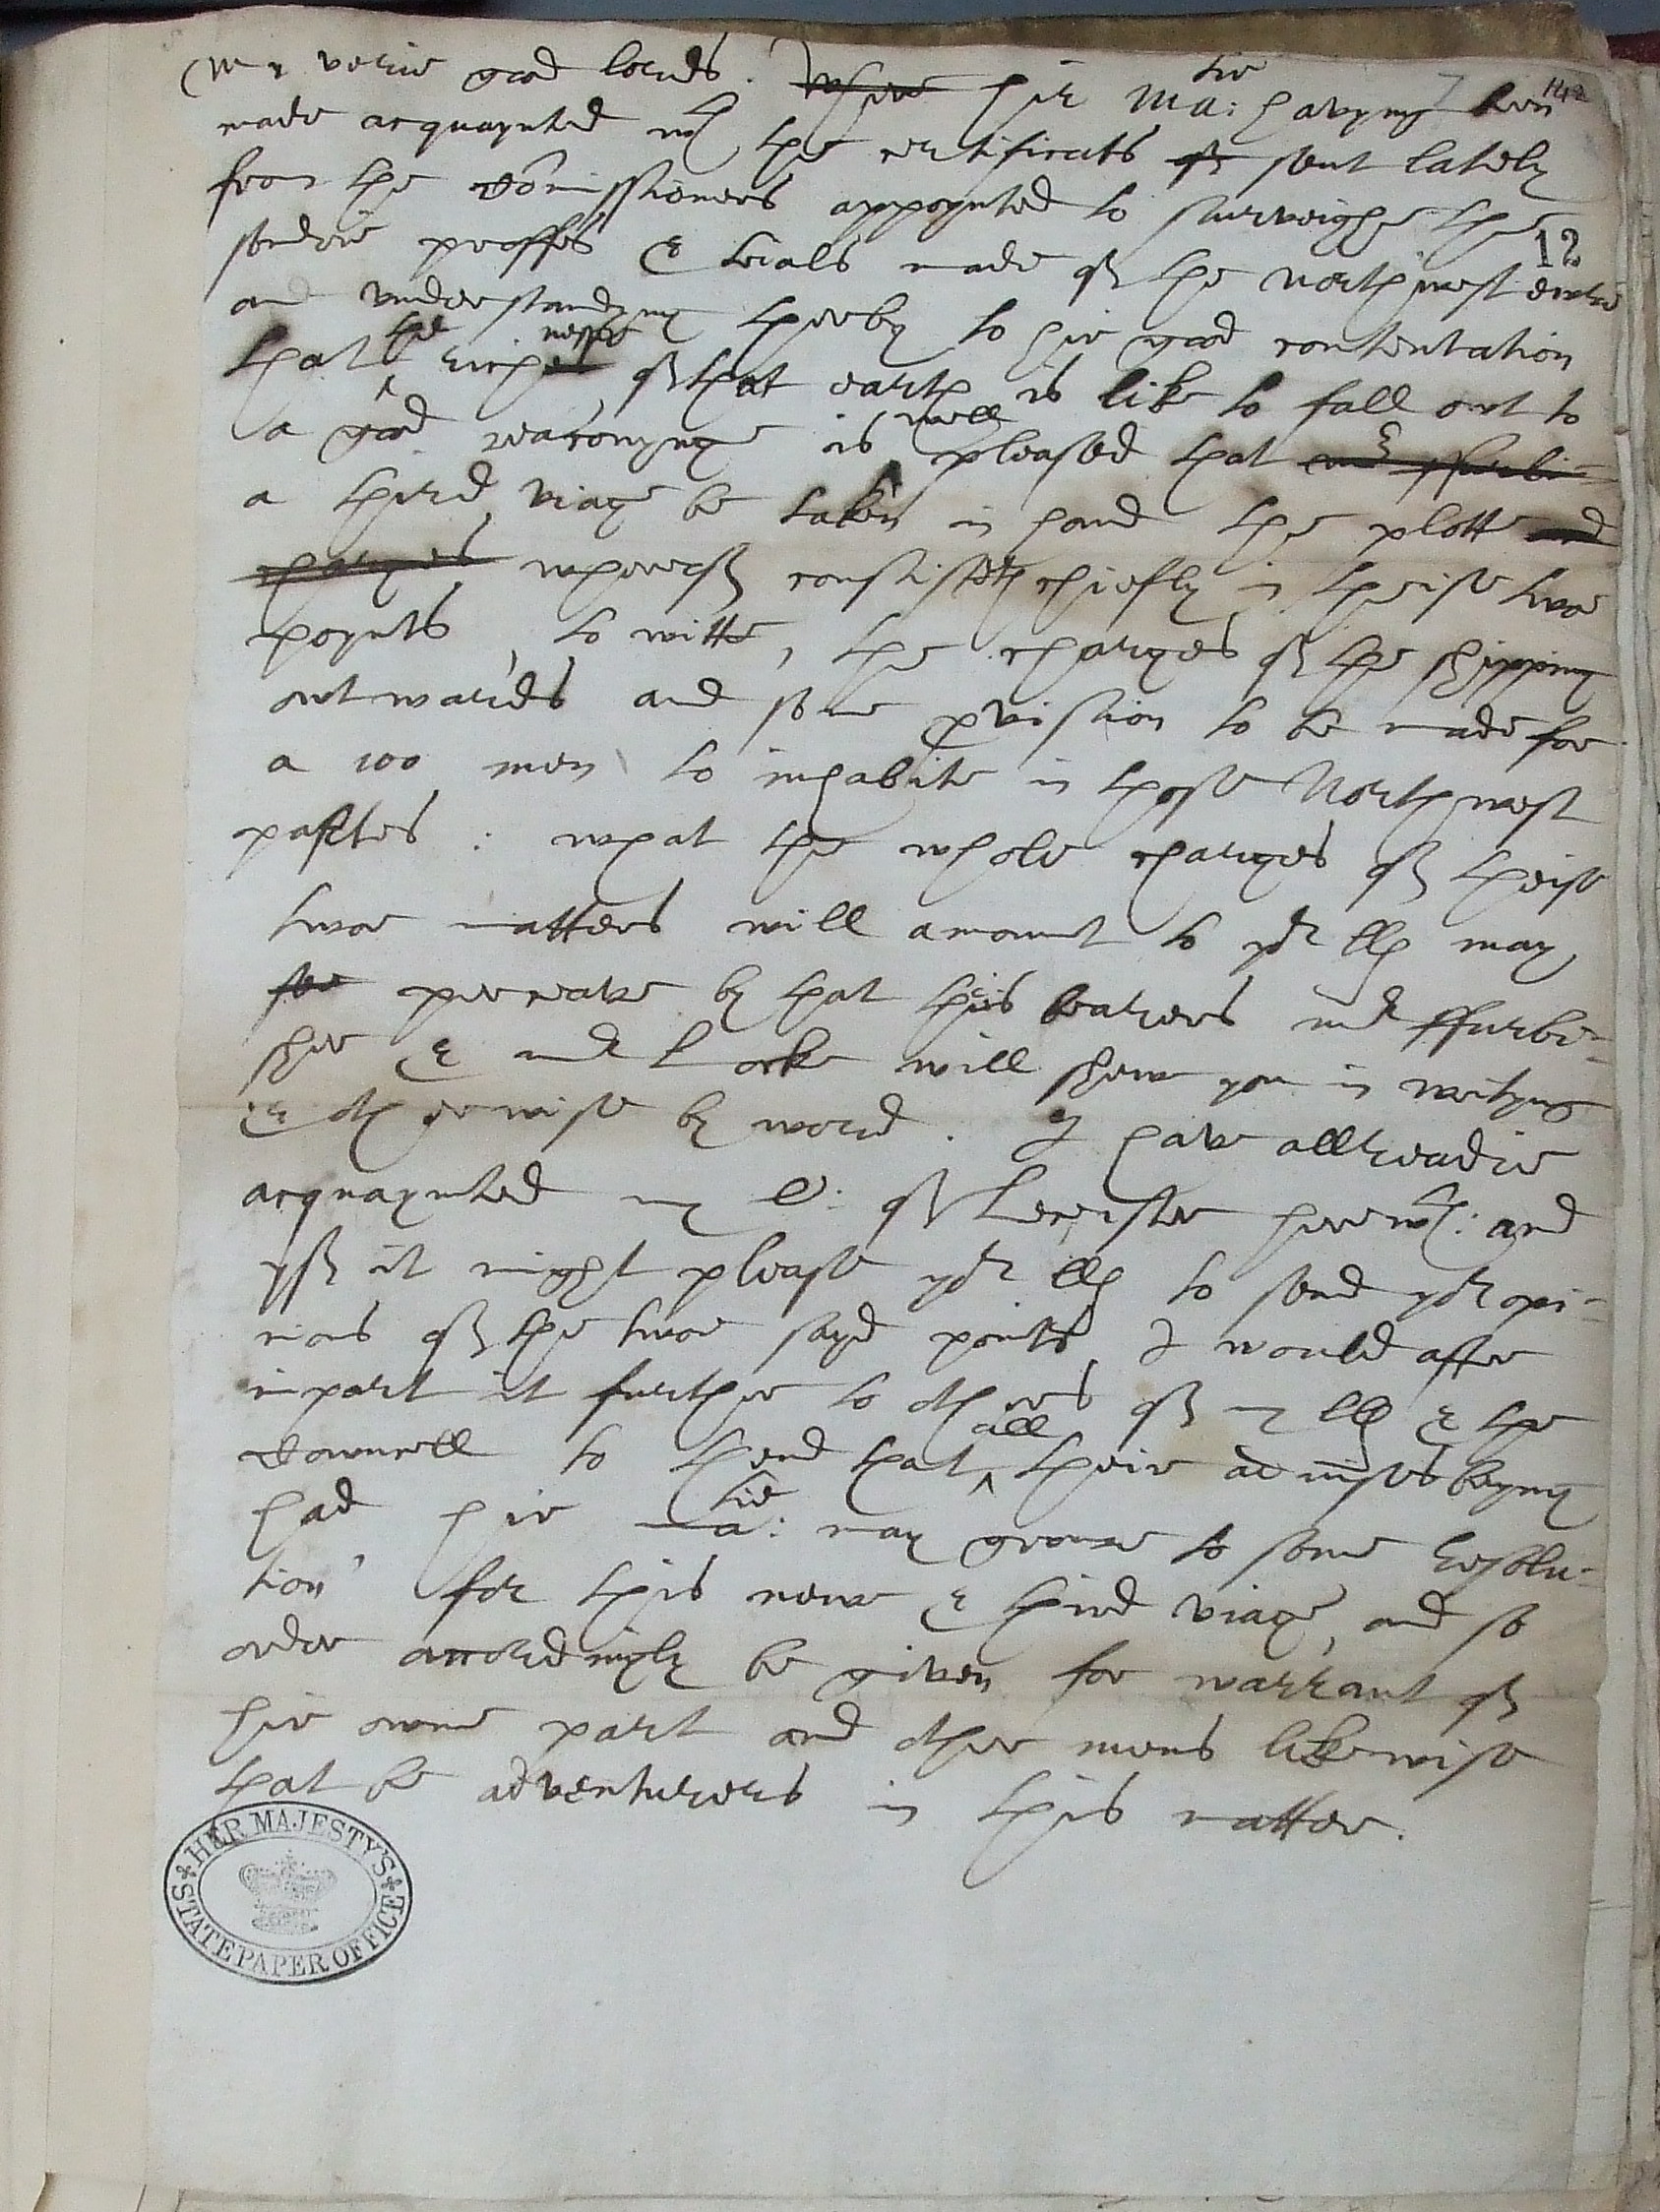 My verie good lords. Where hir Ma:tie havyng ben 142
made acquaynted wth the certificats of sent lately
from the Comissioners appoynted to surveighe the
sondrie proffes & trials made of the Northwest ewre 12
and understandyng therby to hir good contentation
that the richenesse of that earth is like to fall out to
a good reaconynge is well pleased that mr ffurbi=
a third viage be taken in hand the plotte and
charges wherof consisteth chiefly in theise twoe
poynts, to witte, the charges of the shipping
outwards and some pvision to be made for
a 100 men to inhabite in those Northwest
partes : what the whole charges of theise
twoe matters will amount to yor llps may
see perceave by that theis bearers mr ffurbi=
sher & mr Lock will shew you in writyng
& otherwise by word. I have allreadie
acquaynted my L: of Leicester herewth: and
yf it might please yor llps to send yor opi=
nions of the twoe sayd points, I would after
impart it further to others of my llps & the
Counsell to thend that all their advises beyng
had hir Ma:tie may growe to some resolu=
tion for this newe & third viage, and so
order accordingly be given for warrant of
hir owne part and other mens likewise
that be adventurers in this matter.
HER MAJESTY'S
STATE PAPER OFFICE